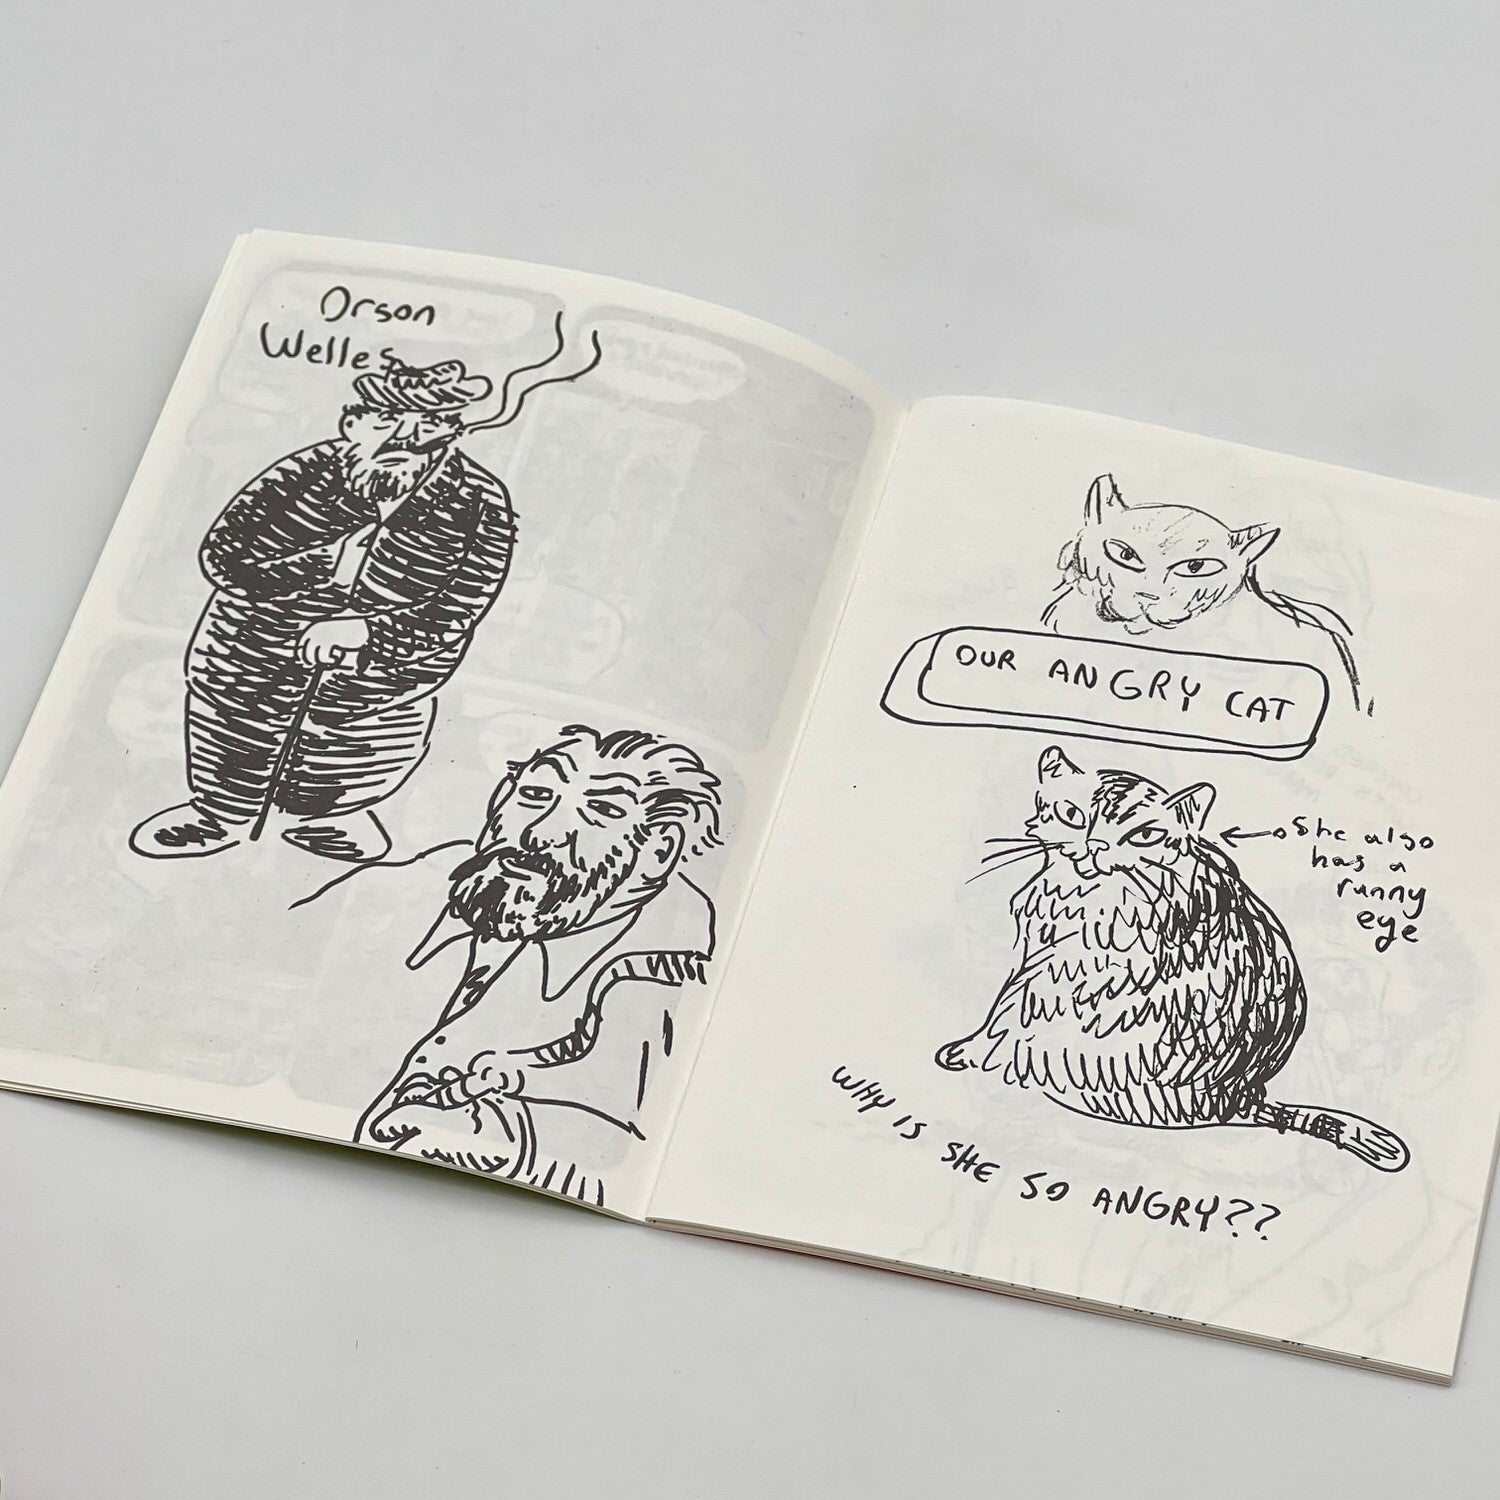 Orson
Welles
OUR ANGRY CAT
She also
has a
runny
eye
WHY IS SHE SO ANGRY??